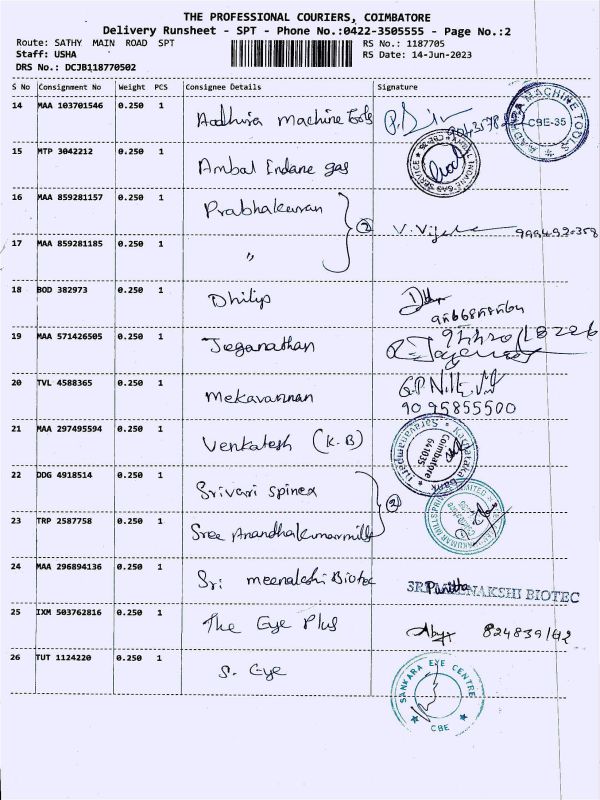 THE PROFESSIONAL COURIERS, COIMBATORE
Delivery Runsheet - SPT - Phone No.:0422-3505555 - Page No.:2
Route: SATHY MAIN ROAD SPT
RS No.: 1187705
Staff: USHA
RS Date: 14-Jun-2023
DRS No.: DCJB118770502
S No Consignment No Weight PCS Consignee Details Signature
14 MAA 103701546 0.250 1 Aadhira Machine Tools
AADHIRA MACHINE TOOLS
CBE-35
15 MTP 3042212 0.250 1 Ambal Indane gas
AMBAL INDANE GAS SERVICE
16 MAA 859281157 0.250 1 Prabhakaran
2
17 MAA 859281185 0.250 1 "
18 BOD 382973 0.250 1 Dhilip
19 MAA 571426505 0.250 1 Jeeganathan
20 TVL 4588365 0.250 1 Mekavannan
9095855500
21 MAA 297495594 0.250 1 Venkatesh (K.B)
Karnataka bank
Saravanampatti
Coimbatore
641035
22 DDG 4918514 0.250 1 Srivari spinex
2
23 TRP 2587758 0.250 1 Sree Anandhakumar mills
24 MAA 296894136 0.250 1 Sri meenakshi Biotec
Panitha
SRI MEENAKSHI BIOTEC
25 IXM 503762816 0.250 1 The Eye Plus
26 TUT 1124220 0.250 1 S. Eye
SANKARA EYE CENTRE
CBE